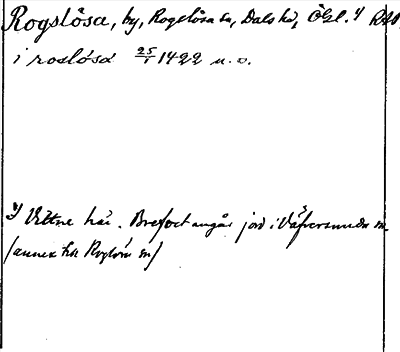 Rogslösa, by, Rogslösa sn, Dals hd, ÖGl. 1) RAP
i roslösa 25/1 1422 u. o.
1) Vittne här. Brefvet angår jord i Väfversunda sn.
(annex till Rogslösa sn)